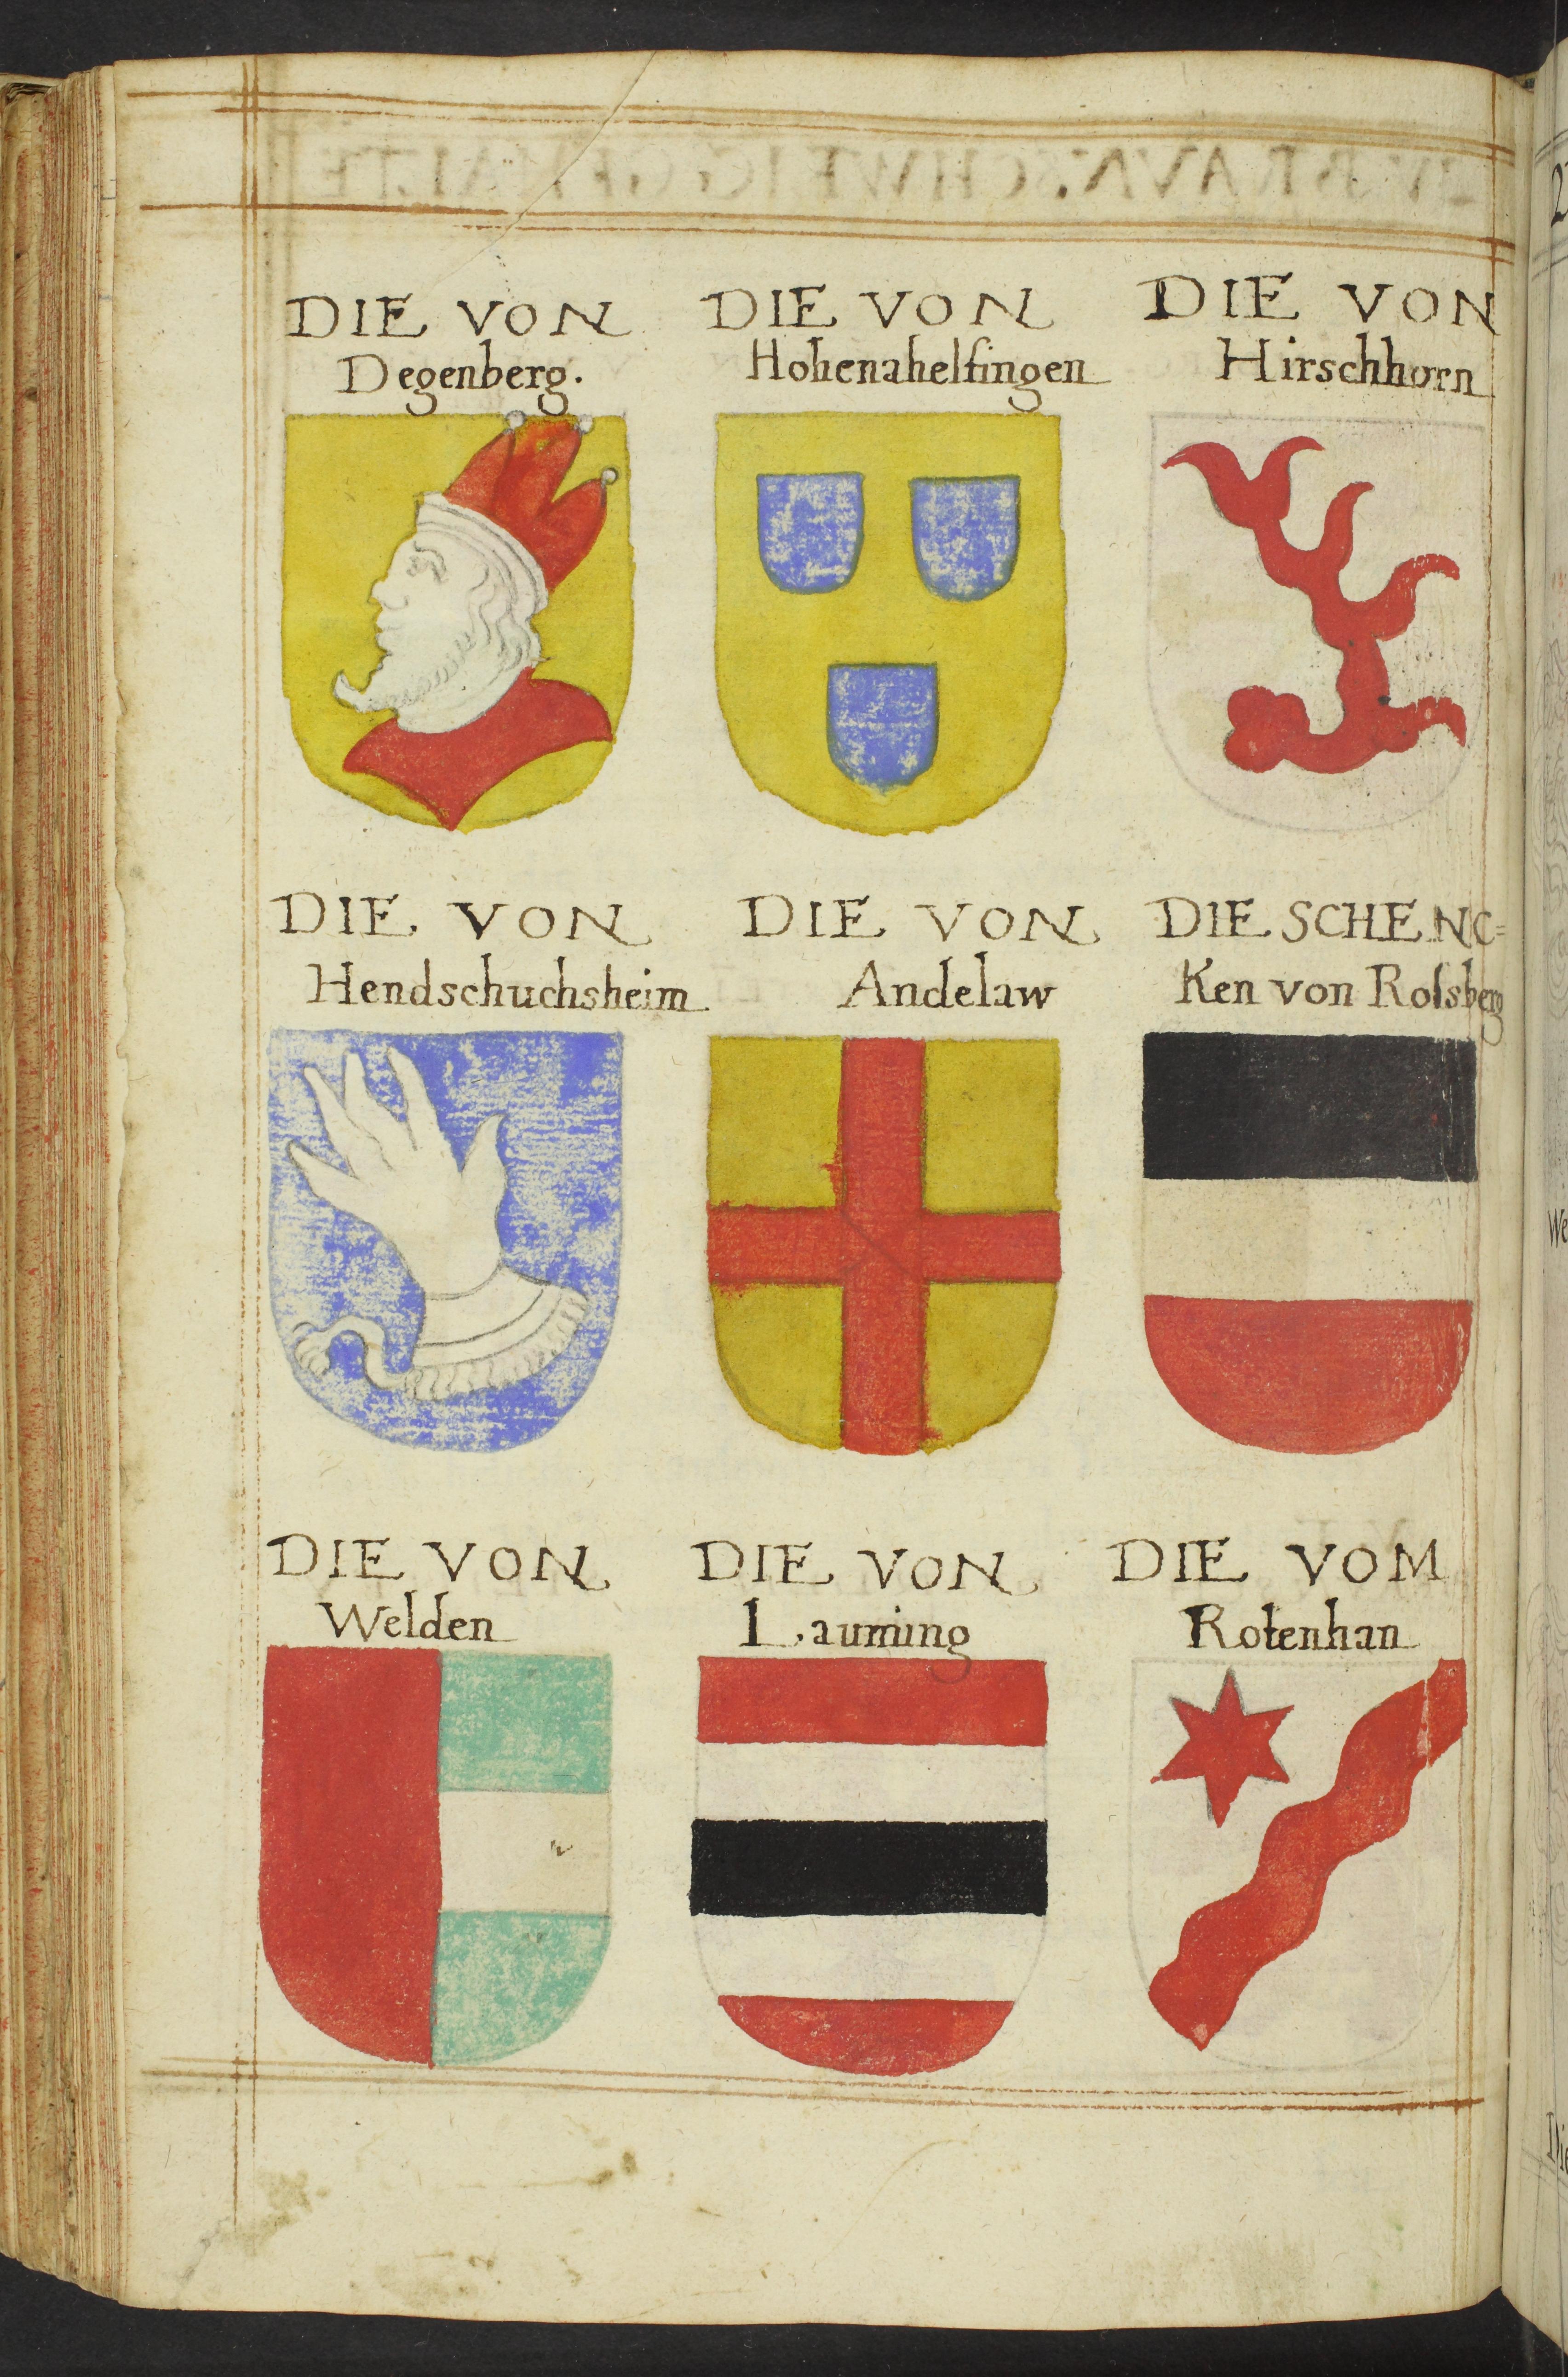 DIE VON
Degenberg.
DIE VON
Hohenahelfingen
DIE VON
Hirschhorn
DIE VON
Hendschuchsheim
DIE VON
Andelaw
DIE SCHENC=
Ken von Rosſberg
DIE VON
Welden
DIE VON
Lauming
DIE VOM
Rotenhan